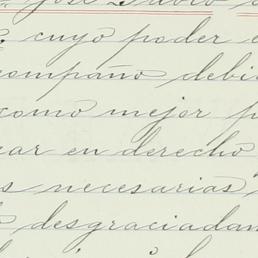 José Pedro
cuyo poder e
compaño debi
como mejor p
ar en derecho
s necesarias
desgraciadam